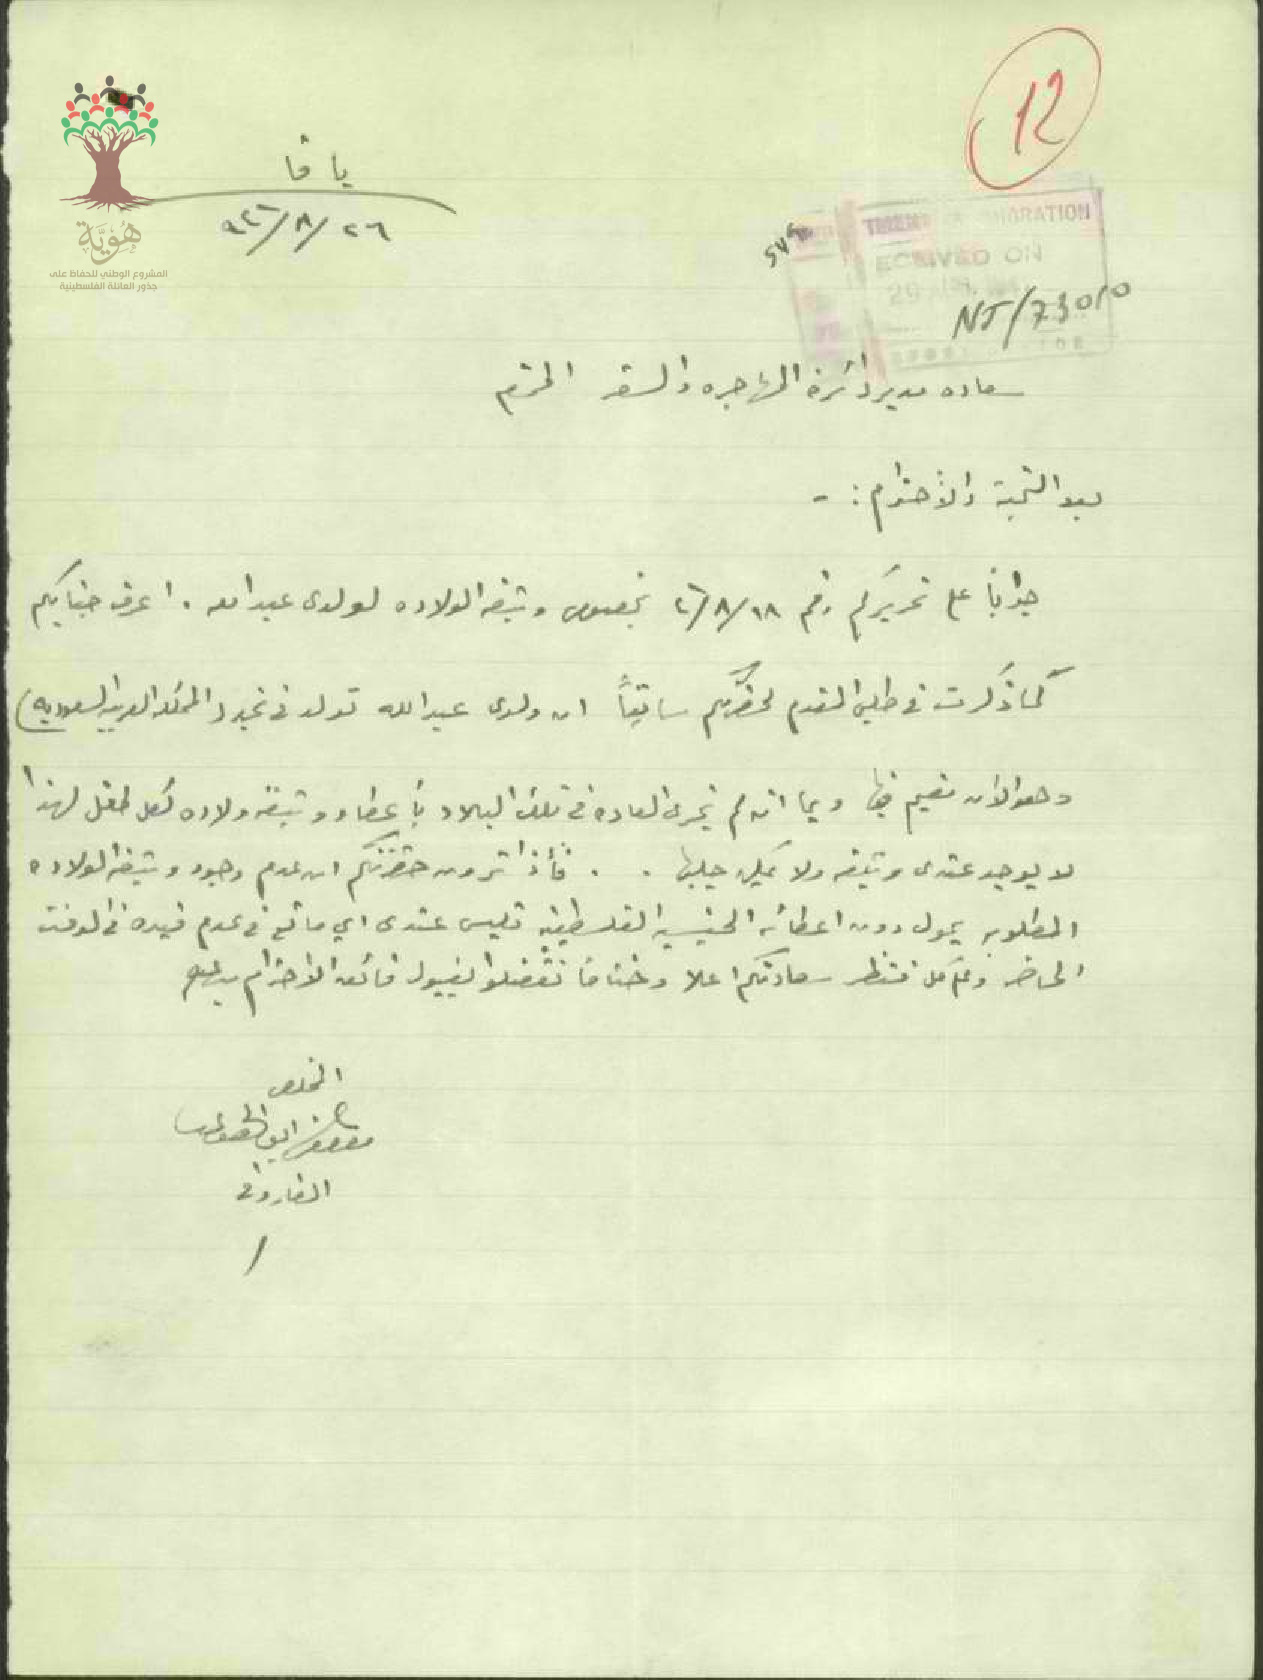 12
هوية
المشروع الوطني للحفاظ على
جذور العائلة الفلسطينية
يافا
٢٦/٨/٩٤٦
TMENT IMMIGRATION
RECEIVED ON
29
NT/73010
سعاده مدير دائرة المهاجره والسفر المحترم
بعد التحية والأحترام :-
جواباً على تحريركم رقم ١٨/٨/٤٦ بخصوص وثيقه الولاده لولدى عبدالله . اعرف جنابكم
كما ذكرت في طلبي المقدم لحضرتكم سابقاً ان ولدى عبدالله تولد في نجد (المملكه العربيه السعوديه)
وهو الان مقيم فيها وبما انه لم تجرى العاده في تلك البلاد بأعطاء وثيقه ولاده لكل طفل لهذا
لا يوجد عندى وثيقه ولا يمكن جلبها . . فأذا ترون حضرتكم ان عدم وجود وثيقه الولاده
المطلوبه يحول دون اعطائه الجنسيه الفلسطينيه فليس عندى اي مانع في عدم قيده في الوقت
الحاضر وعلى كل فنظر سعادتكم اعلا وختاما تفضلوا بقبول فائق الاحترام
المخلص
الفاروقي